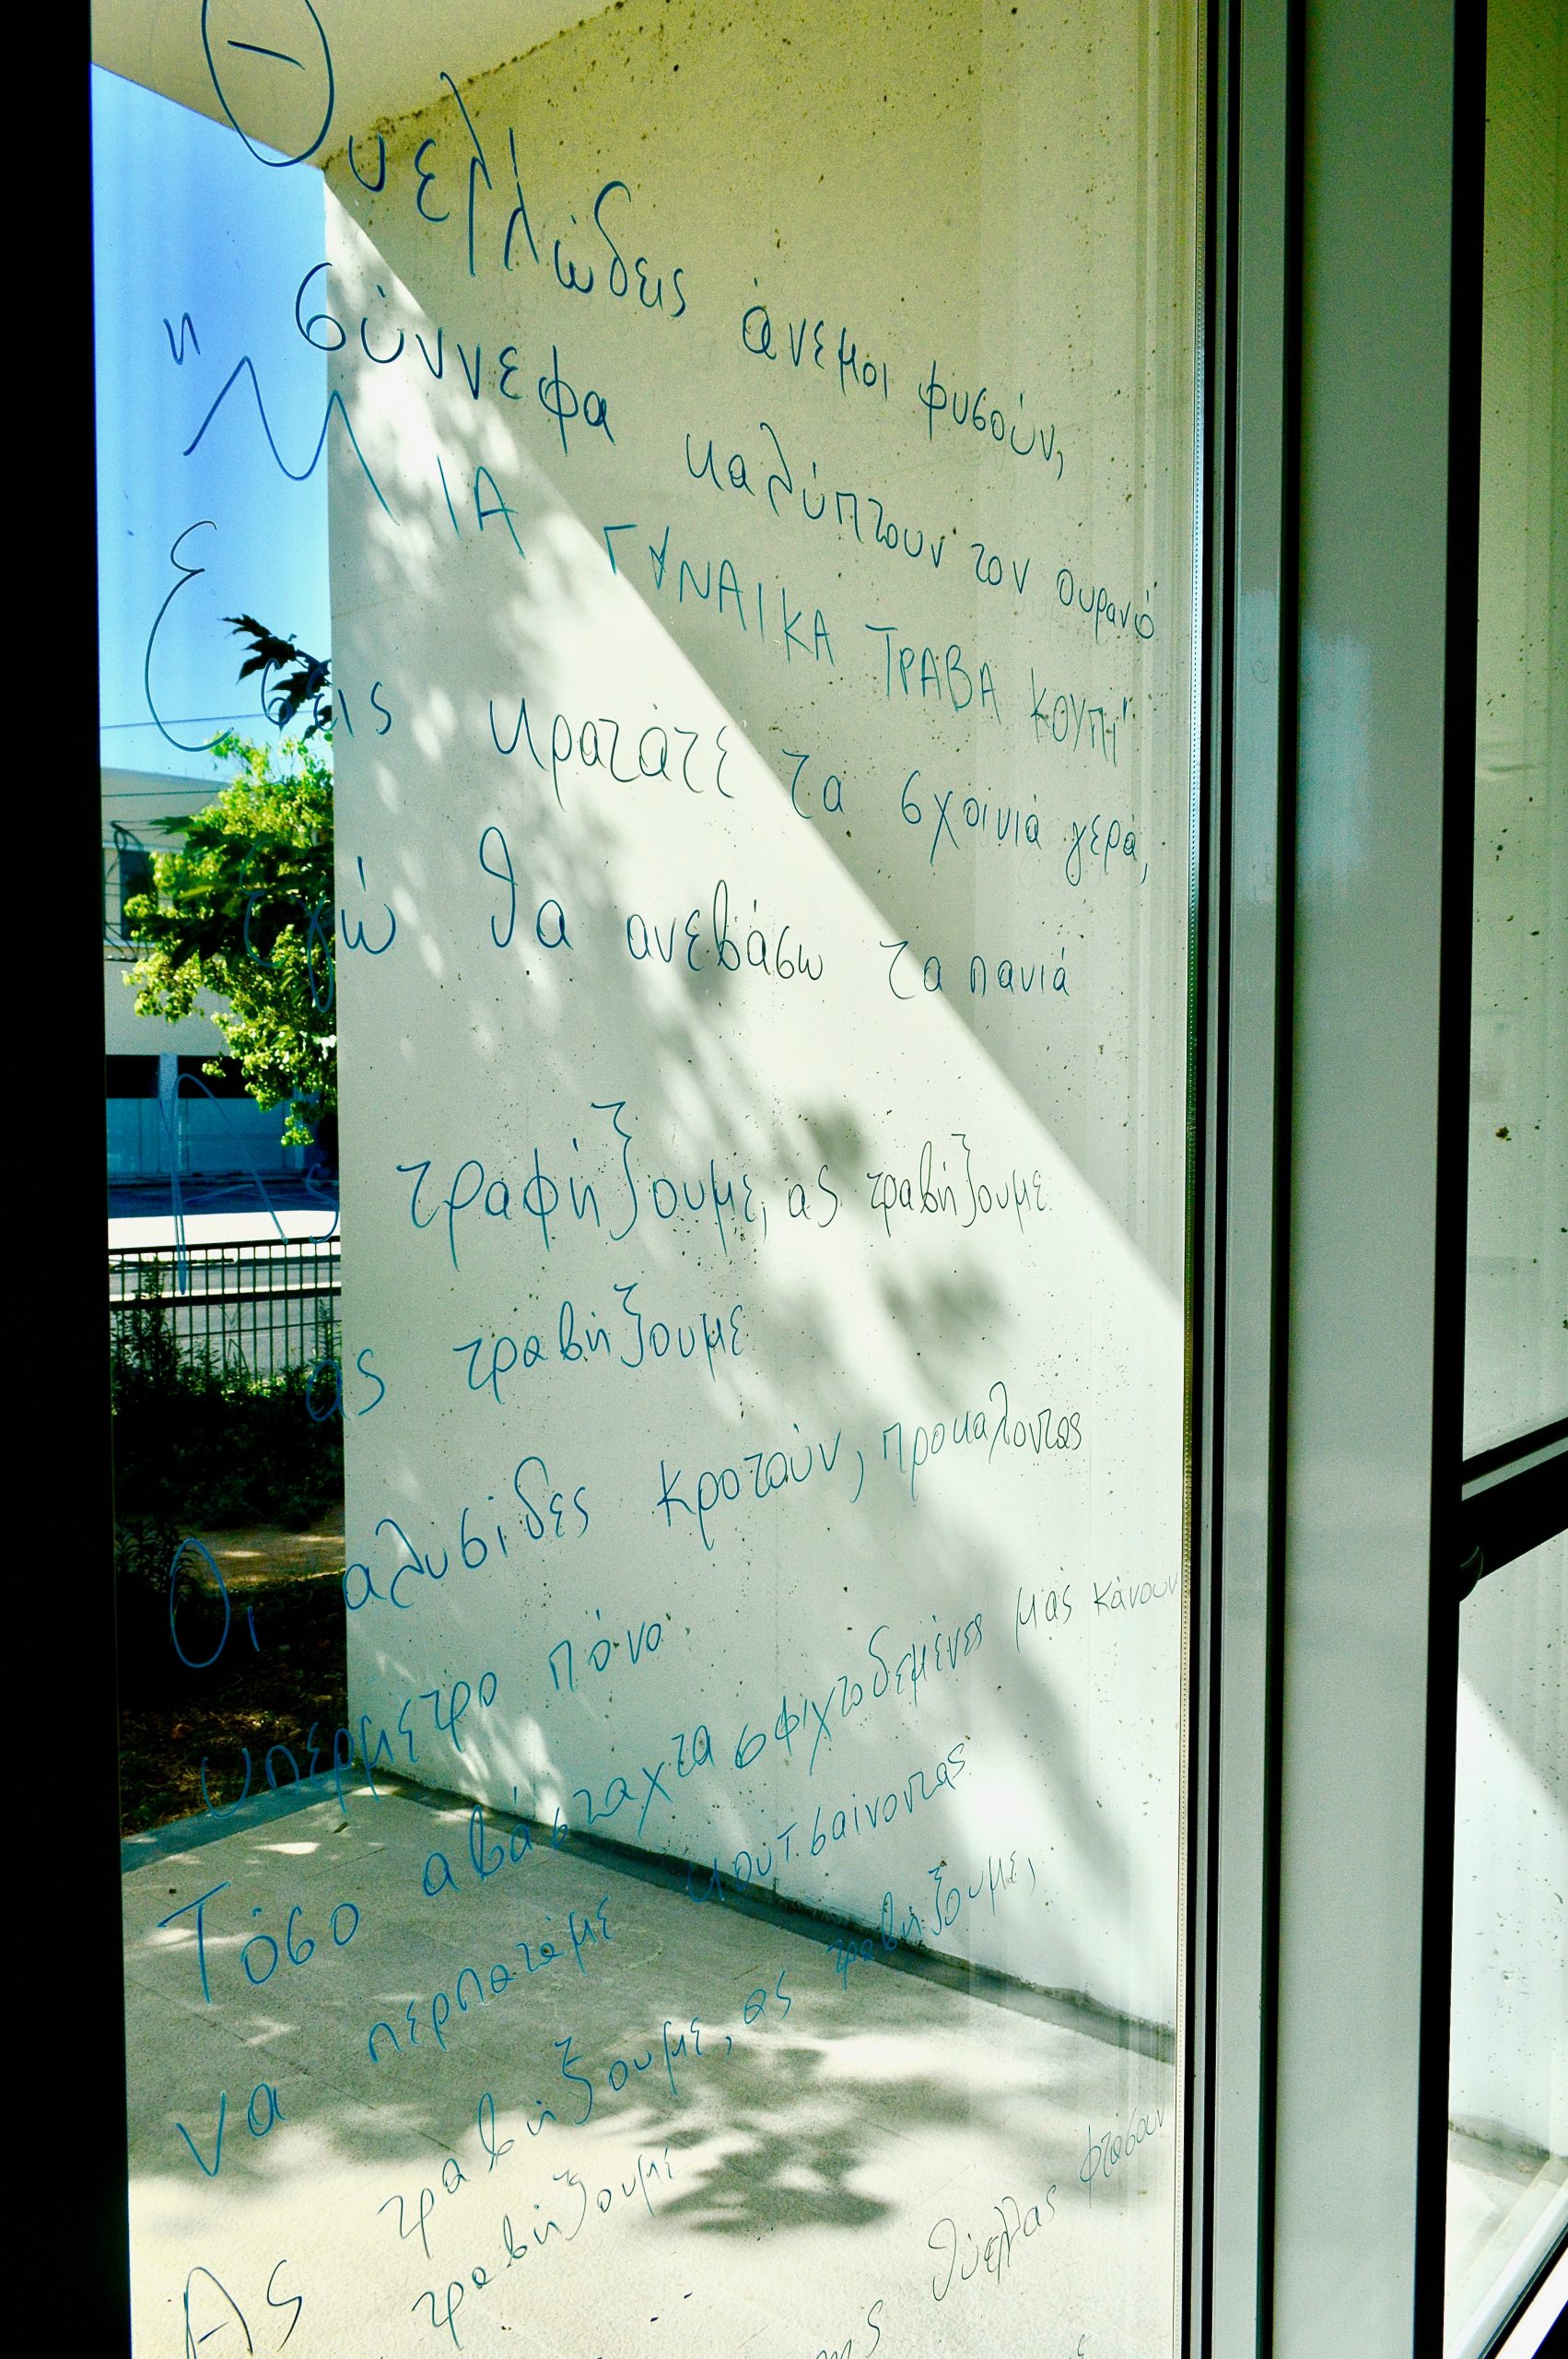 Θυελλώδεις άνεμοι φυσούν,
σύννεφα καλύπτουν τον ουρανό
"ΜΙΑ ΓΥΝΑΙΚΑ ΤΡΑΒΑ ΚΟΥΠΙ"
Εσείς κρατάτε τα σχοινιά γερά,
εγώ θα ανεβάσω τα πανιά
Ας τραφήξουμε, ας τραβήξουμε
ας τραβήξουμε
Οι αλυσίδες κροτούν, προκαλοντας
υπέρμετρο πόνο
Τόσο αβάσταχτα σφιχτοδεμένες μας κάνουν
να περπατάμε κουτσαίνοντας
Ας τραβήξουμε, ας τραβήξουμε,
τραβήξουμε
θύελλας φτάσουν